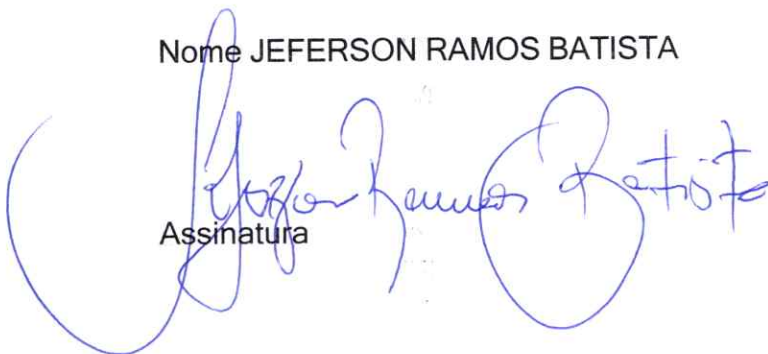 Nome JEFERSON RAMOS BATISTA
Jeferson Ramos Batista
Assinatura